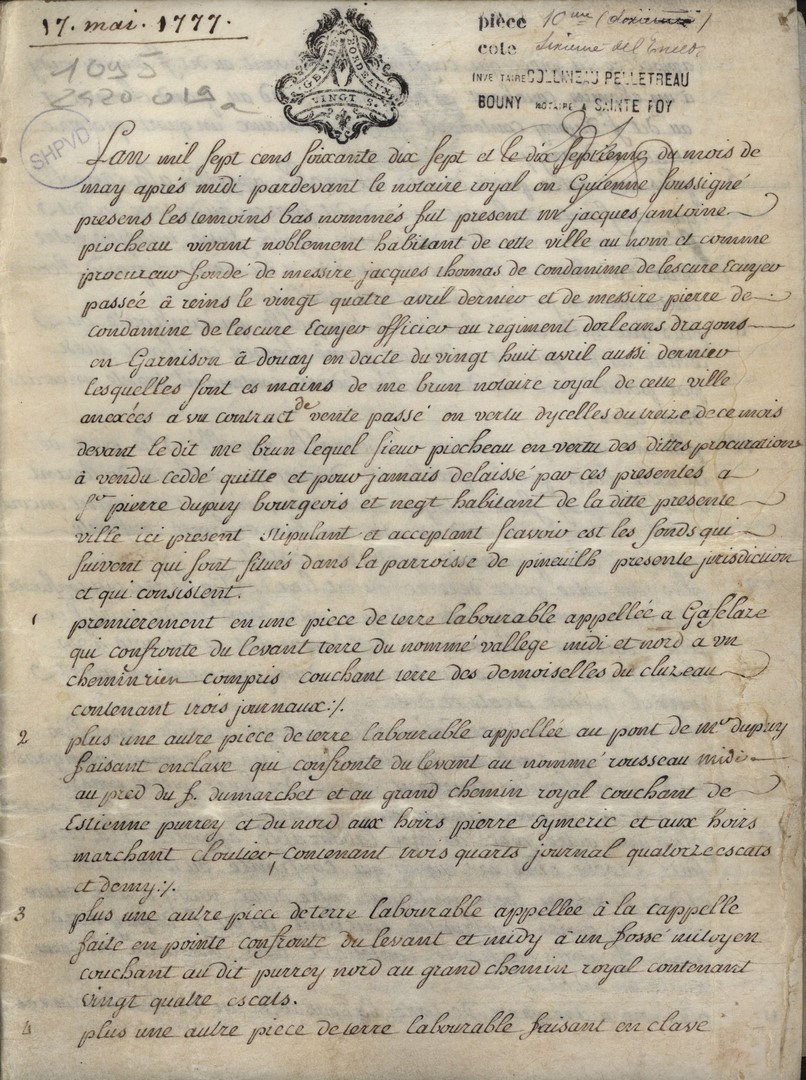 17. mai. 1777.
pièce 10eme (dixieme)
cote Sixieme de l'
INVENTAIRE COLLINEAU PELLETREAU
BOUNY NOTAIRE A SAINTE FOY
GEN. DE BORDEAUX
VINGT S.
1095
2520 019 a
SHPVD
Lan mil sept cens soixante dix sept et le dix septieme du mois de
may aprés midi pardevant le notaire royal en Guienne soussigné
presens les temoins bas nommés fut present mr jacques antoine
piocheau vivant noblement habitant de cette ville au nom et comme
procureur fondé de messire jacques thomas de condamine de lescure Ecuyer
passée à reins le vingt quatre avril dernier et de messire pierre de
condamine de lescure Ecuyer officier au regiment dorleans dragons
en Garnison à douay en dacte du vingt huit avril aussi dernier
lesquelles sont es mains de me brun notaire royal de cette ville
anexées a un contract de vente passé en vertu dycelles du treize de ce mois
devant le dit me brun lequel sieur piocheau en vertu des dittes procurations
à vendu ceddé quitté et pour jamais delaissé par ces presentes a
sr pierre dupuy bourgeois et negt habitant de la ditte presente
ville ici present stipulant et acceptant scavoir est les fonds qui
suivent qui sont situés dans la parroisse de pineuilh presente jurisdiction
et qui consistent.
1 premierement en une piece de terre labourable appellée a Gaselare
qui confronte du levant terre du nommé vallege midi et nord a un
chemin rien compris couchant terre des demoiselles du cluzeau
contenant trois journaux :/.
2 plus une autre piece de terre labourable appellée au pont de Mr dupuy
faisant enclave qui confronte du levant au nommé rousseau midi
au pred du s. dumarchet et au grand chemin royal couchant de
Estienne purrey et du nord aux hoirs pierre Eymeric et aux hoirs
marchant cloutier, contenant trois quarts journal quatorze escats
et demy :/.
3 plus une autre piece de terre labourable appellee à la cappelle
faite en pointe confronte du levant et midy à un fossé mitoyen
couchant au dit purrey nord au grand chemin royal contenant
vingt quatre escats.
4 plus une autre piece de terre labourable faisant enclave